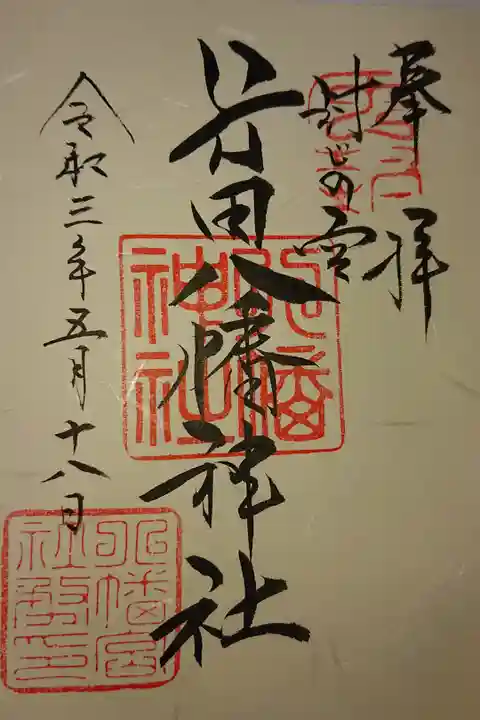 奉拝
封じの宮
田八幡神社
令和三年五月十八日
八幡
神社
八幡宮